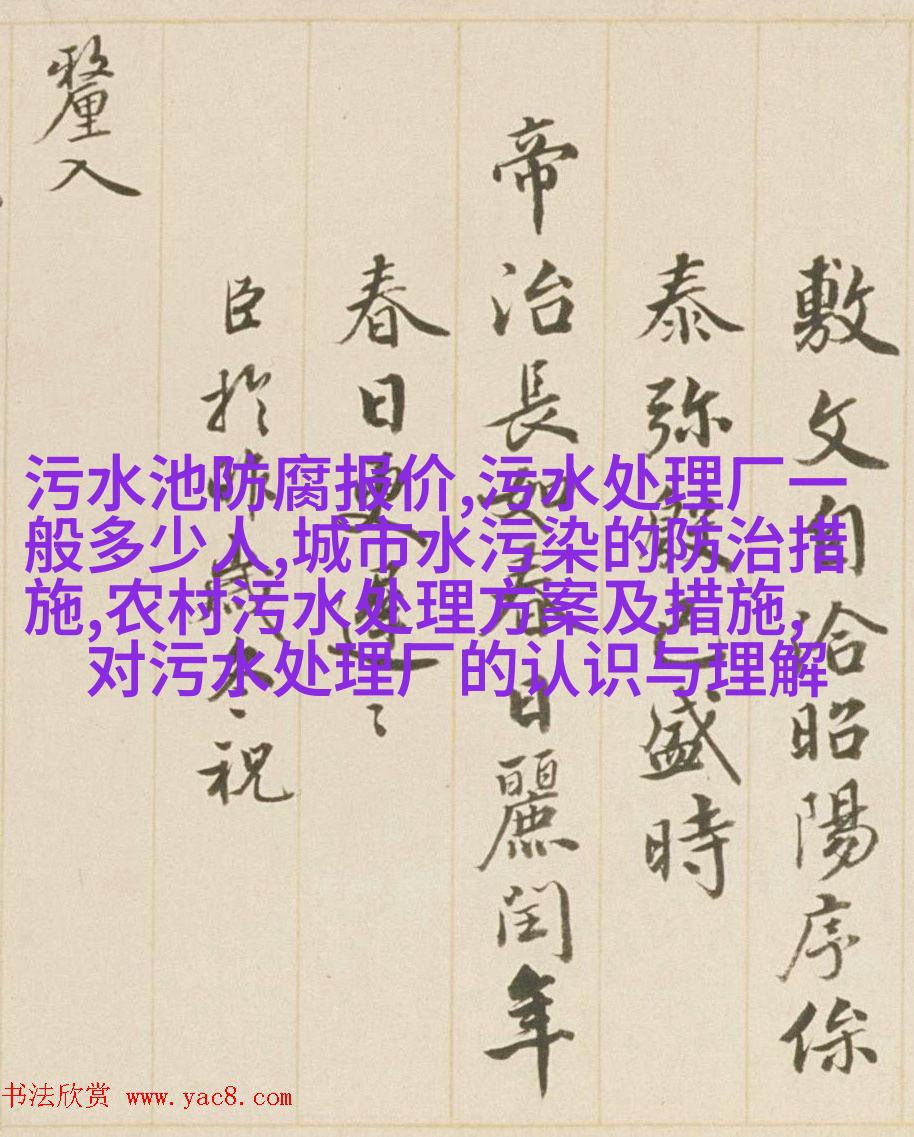 敷文自洽昭陽序
泰弥已盛時
帝治長如春日麗閏年
春日更遲々
臣於祝
釐入
污水池防腐报价,污水处理厂一
般多少人,城市水污染的防治措
施,农村污水处理方案及措施,
对污水处理厂的认识与理解
书法欣赏 www.yac8.com